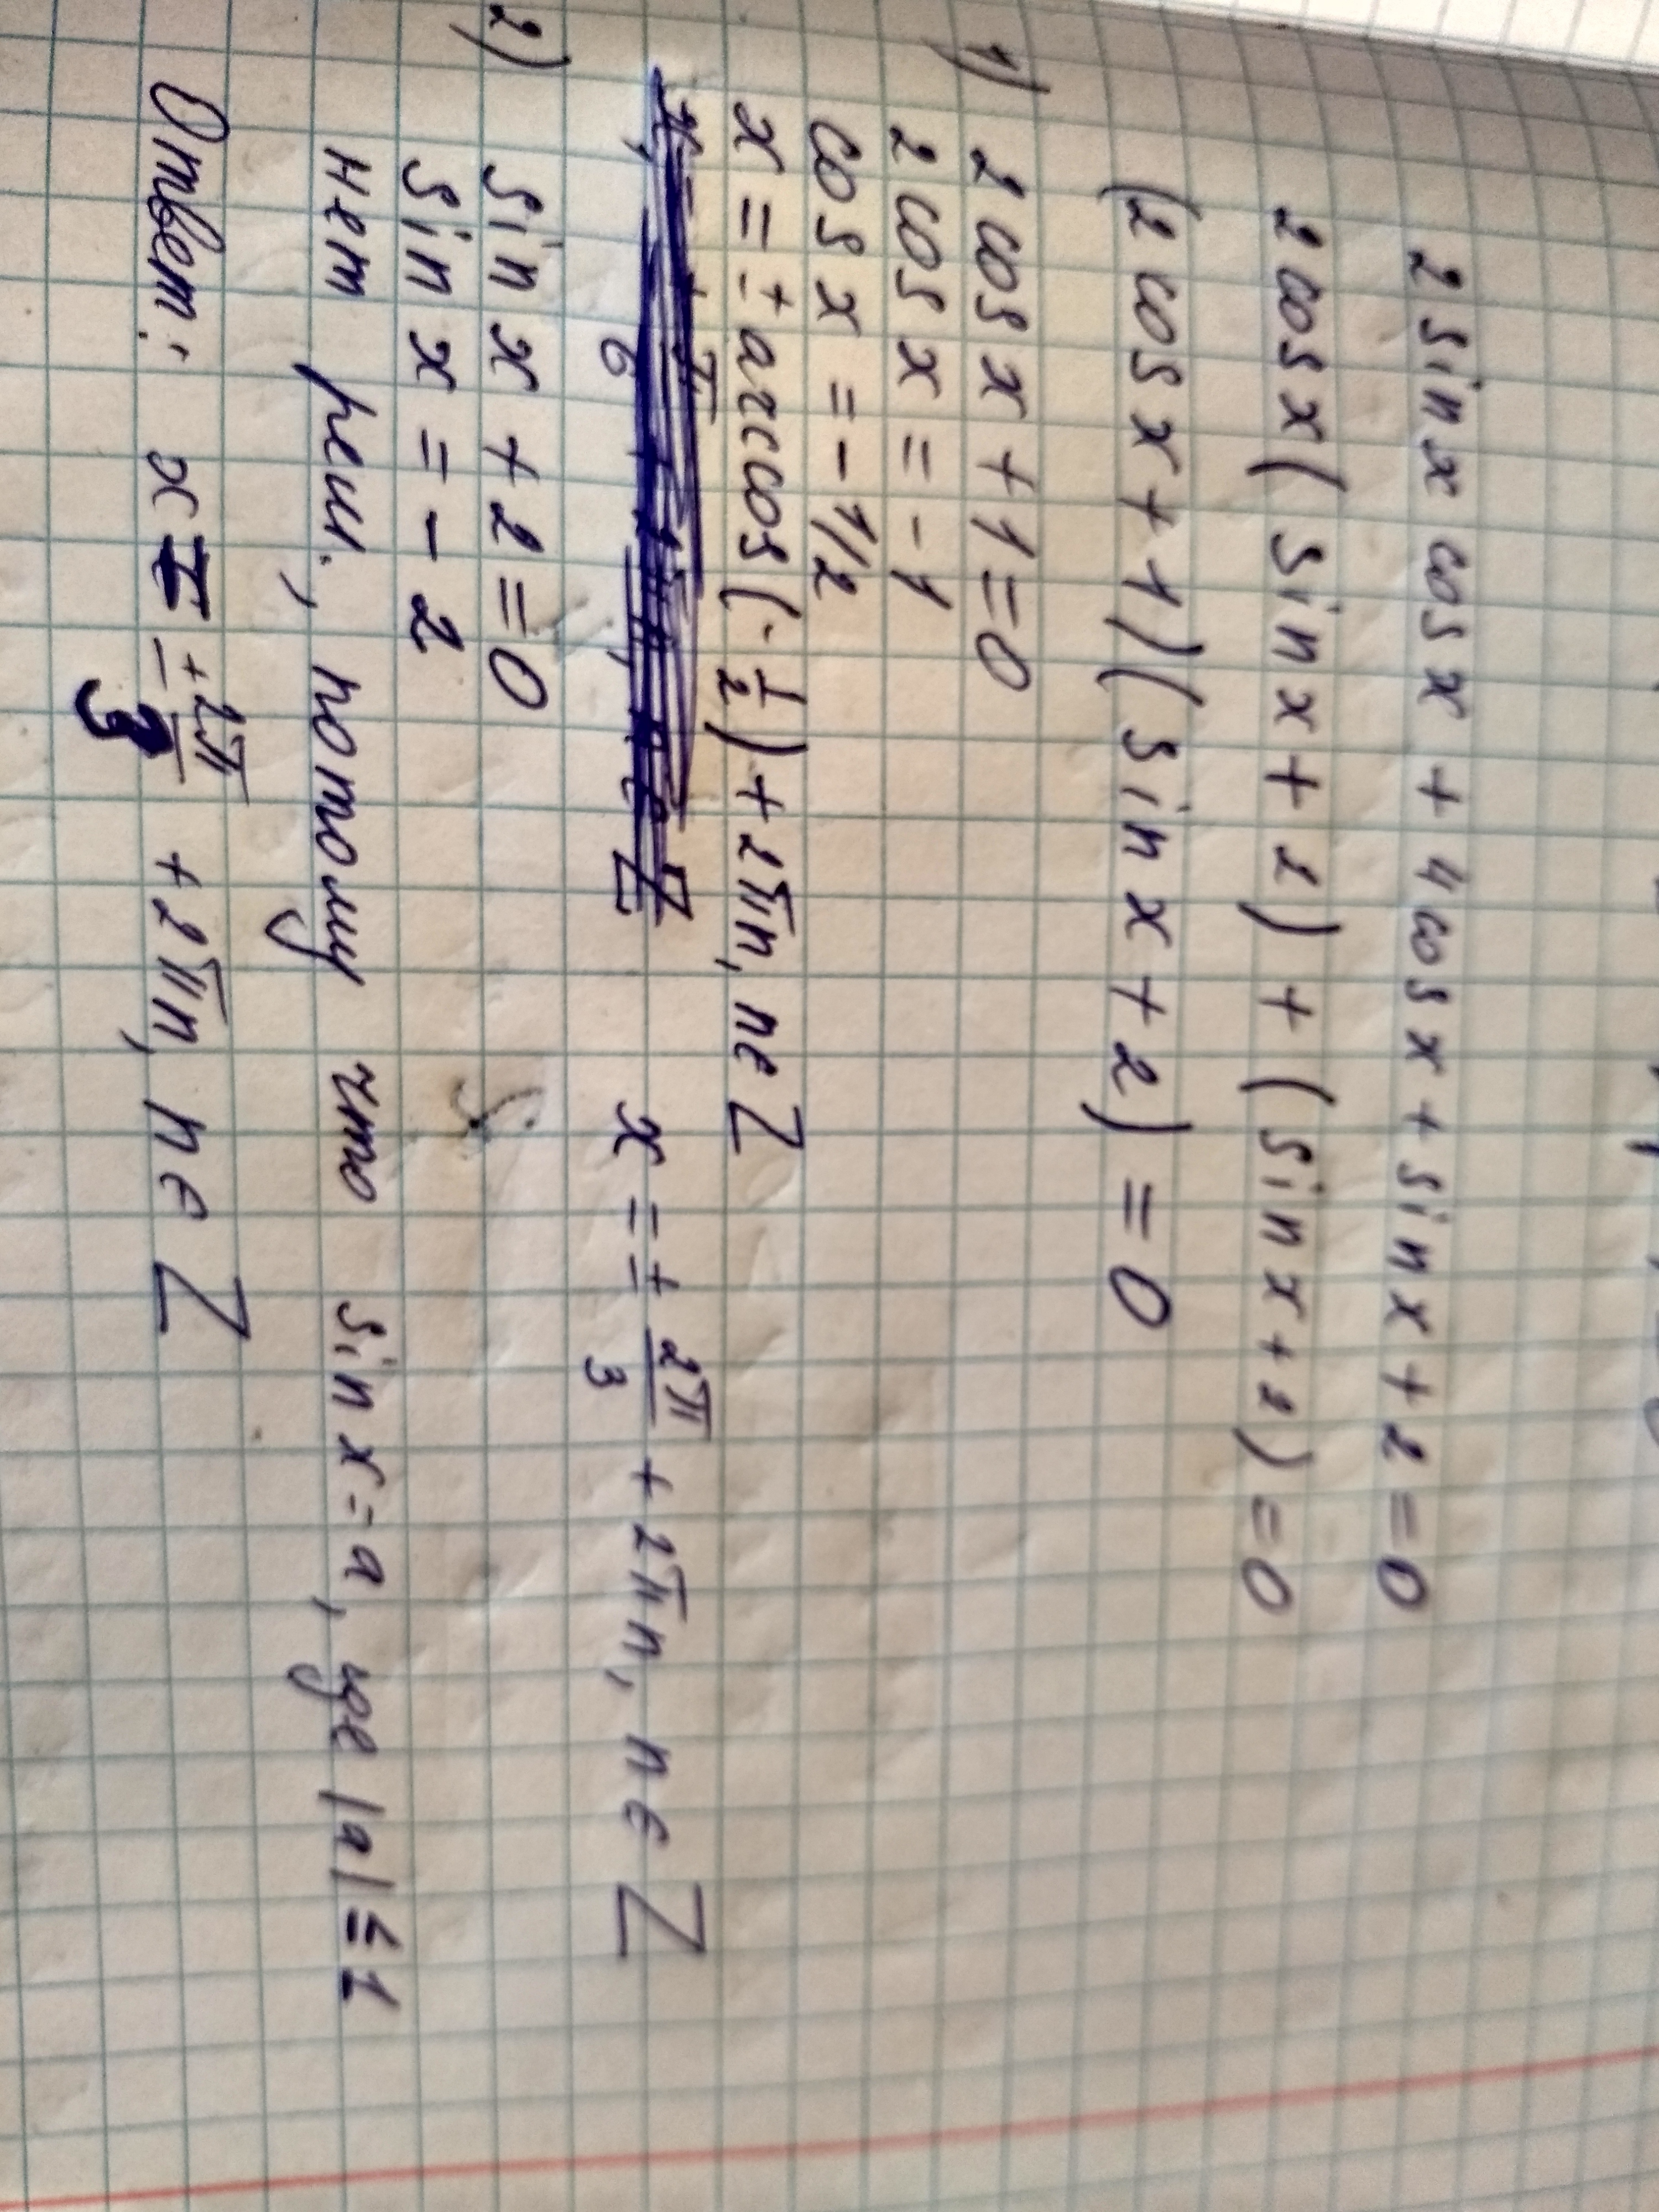 2 sin x cos x + 4 cos x + sin x + 2 = 0
2 cos x (sin x + 2) + (sin x + 2) = 0
(2 cos x + 1)(sin x + 2) = 0
1) 2 cos x + 1 = 0
2 cos x = -1
cos x = -1/2
x = ± arccos (-1/2) + 2πn, n∈Z
x = ± 2π/3 + 2πn, n∈Z
2) sin x + 2 = 0
sin x = -2
нет реш., потому что sin x = a, где |a| ≤ 1
Ответ: x = ± 2π/3 + 2πn, n∈Z